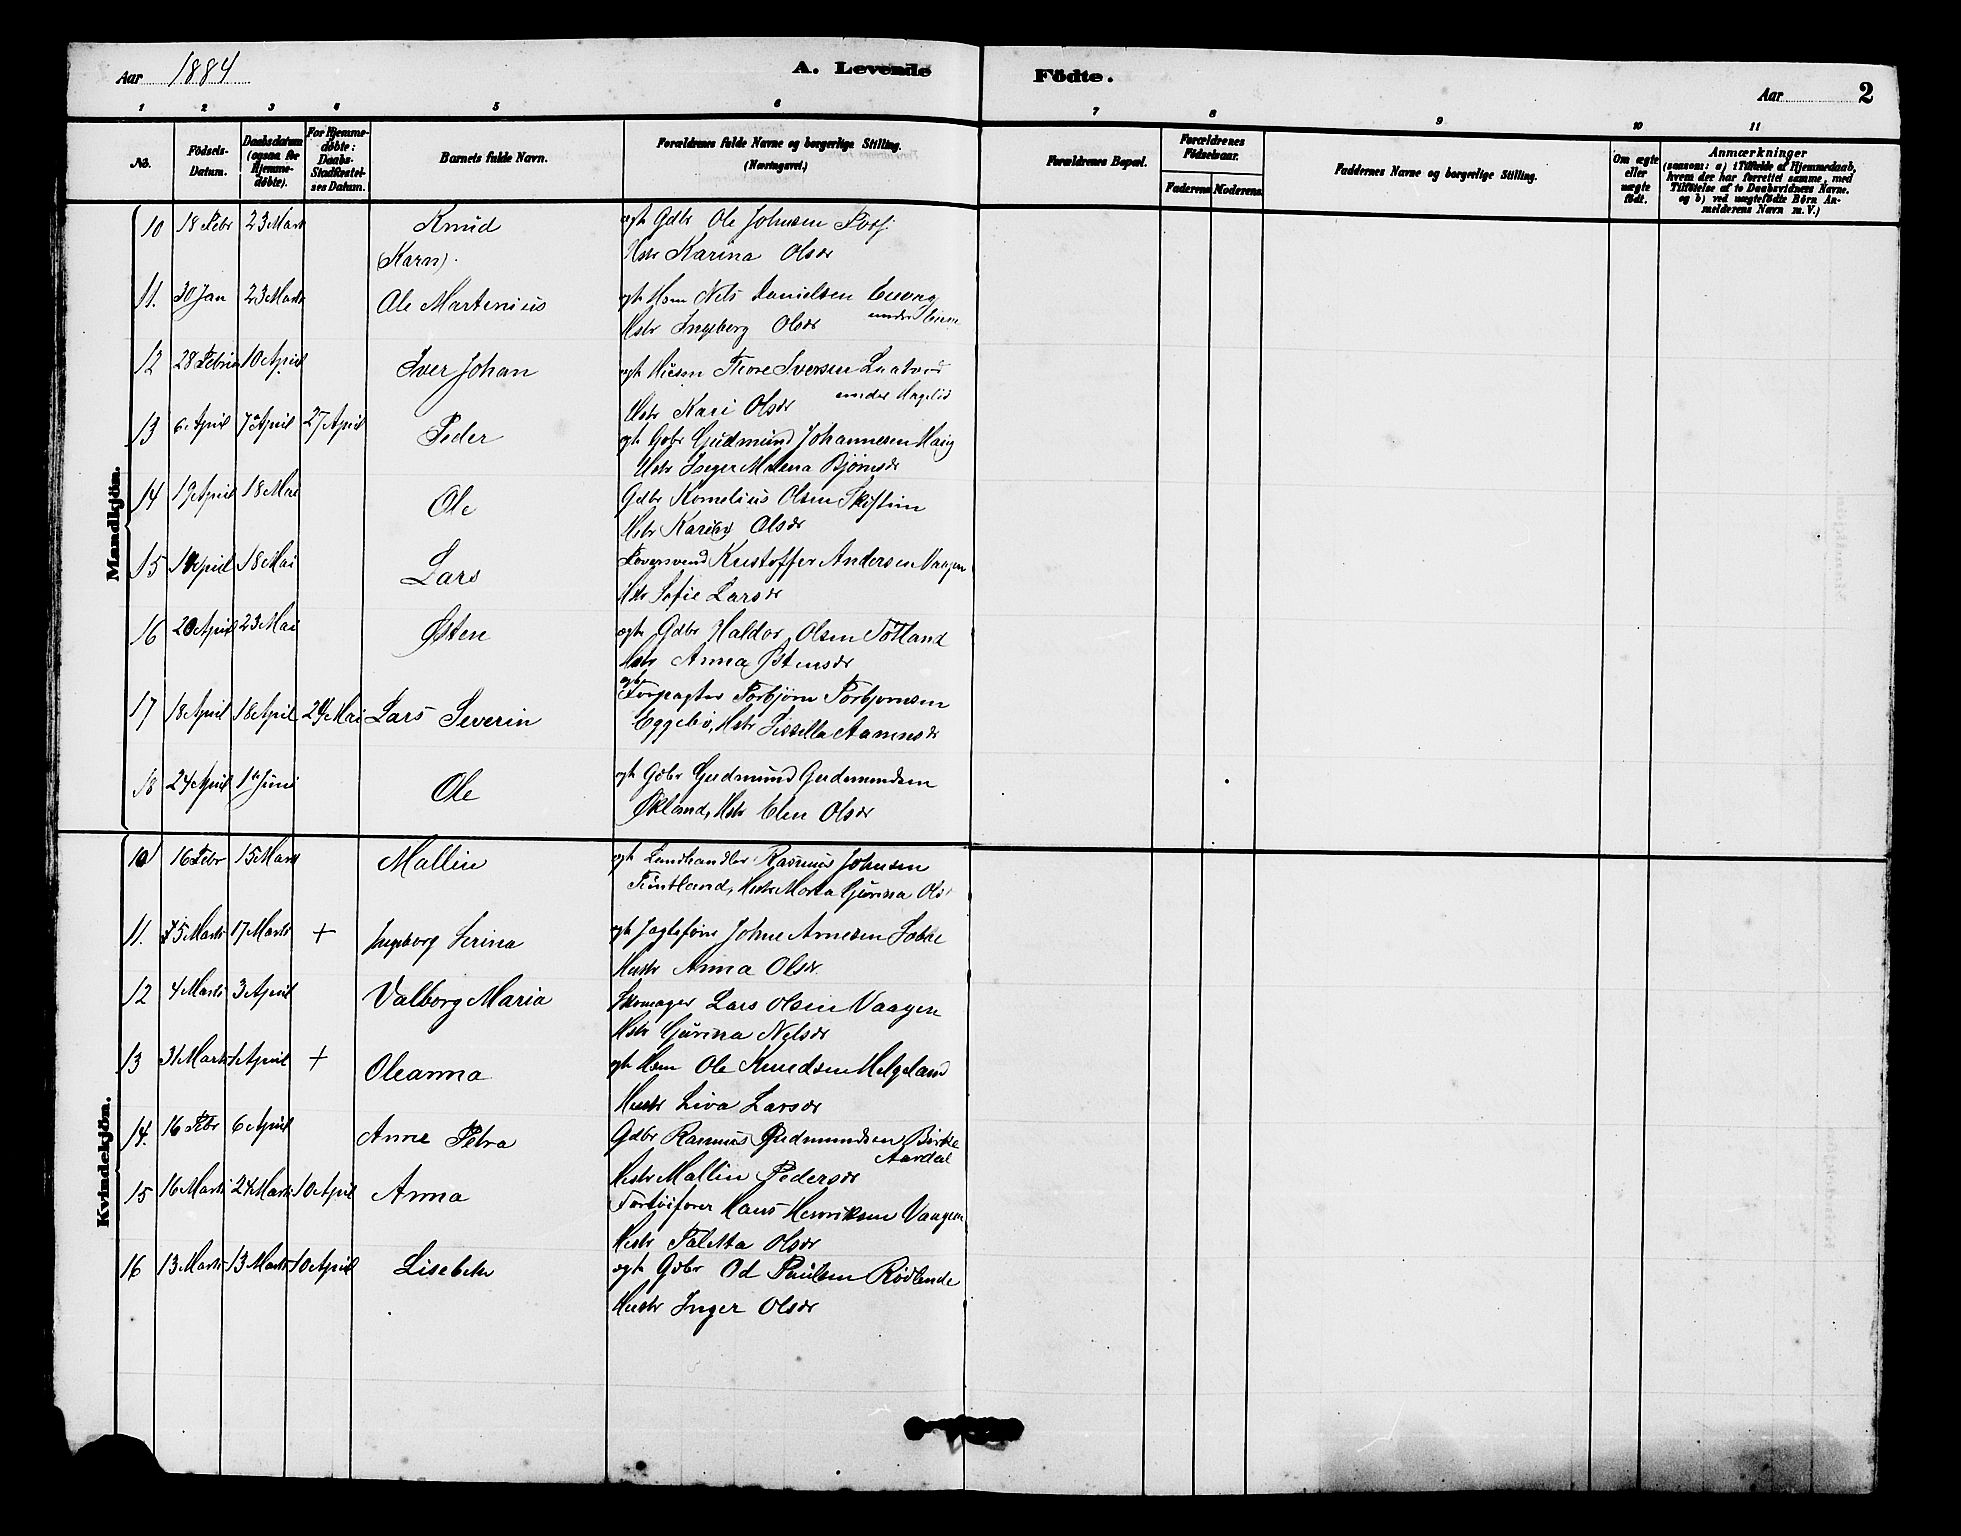 Aar 1884 A. Levende Födte. Aar 2
1 2 3 4 5 6 7 8 9 10 11
No. Födsels-Datum. Daabsdatum (ogsaa for Hjemmedöbte). For Hjemmedöbte: Daabs-Stadfæstelses Datum. Barnets fulde Navn. Forældrenes fulde Navne og borgerlige Stilling. (Næringsvei.) Forældrenes Bopæl. Forældrenes Födselsaar. Faderens Moderens Faddernes Navne og borgerlige Stilling. Om ægte eller uægte födt. Anmærkninger (saasom: a) i Tilfælde af Hjemmedaab, hvem der har forrettet samme, med Tilföielse af to Daabsvidners Navne, og b) ved uægtefödte Börn Anmelderens Navn m. V.)
Mandkjön.
10 18 Febr 23 Mart Knud ogts Gdbr Ole Johnsen
(Karn). Hstr Karina Olsdr
11. 30 Jan 23 Mart Ole Martenius ogts Hsm Nels Danielsen
Hstr Ingeborg Olsdr under
12 28 Febru 10 April Iver Johan ogts Tore Iversen
Hstr Kari Olsdr under Hagelid
13 6 April 7 April 27 April Peder ogts Gdbr Gudmund Johannesen Haug
Hstr Inger Malena Bjørnsdr
14 19 April 18 Mai Ole Gdbr Kornelius Olsen
Hstr Olsdr
15 April 18 Mai Lars Kristoffer Andersen Vaagen
Hstr Sofie Larsdr
16 20 April 23 Mai Østen ogts Gdbr Haldor Olsen Totland
Hstr Anna Østensdr
17 18 April 18 April 24 Mai Lars Severin ogts Forpagter Torbjørn Torbjørnsen
Eggebø, Hstr Sissella
18 24 April 1 Juni Ole ogts Gdbr Gudmund Gudmundsen
Økland, Hstr Elen Olsdr
Kvindekjön.
10 16 Febr 15 Mart Mallin ogts Landhandler Rasmus Johnsen
Tuntland, Hstr Marta Gurina Olsdr
11. 15 Marts 17 Marts + Ingeborg Serina ogts Jagtefører Johne Arnesen
Hustr Anna Olsdr
12 4 Marts 3 April Valborg Maria Skomager Lars Olsen Vaagen
Hstr Gurina Nelsdr
13 31 Marts 1 April + Oleanna ogts Hsm Ole Knudsen Helgeland
Hustr Liva Larsdr
14. 16 Febr 6 April Anne Petra Gdbr Rasmus Gudmundsen Birke
Aardal
Hstr Mallin Pedersdr
15 16 Marts 24 Marts 10 April Anna Hans Henriksen Vaagen
Hstr Taletta Olsdr
16 13 Marts 13 Marts 10 April Lisebeth ogts Gdbr Od Paulsen Rødlende
Hustr Inger Olsdr